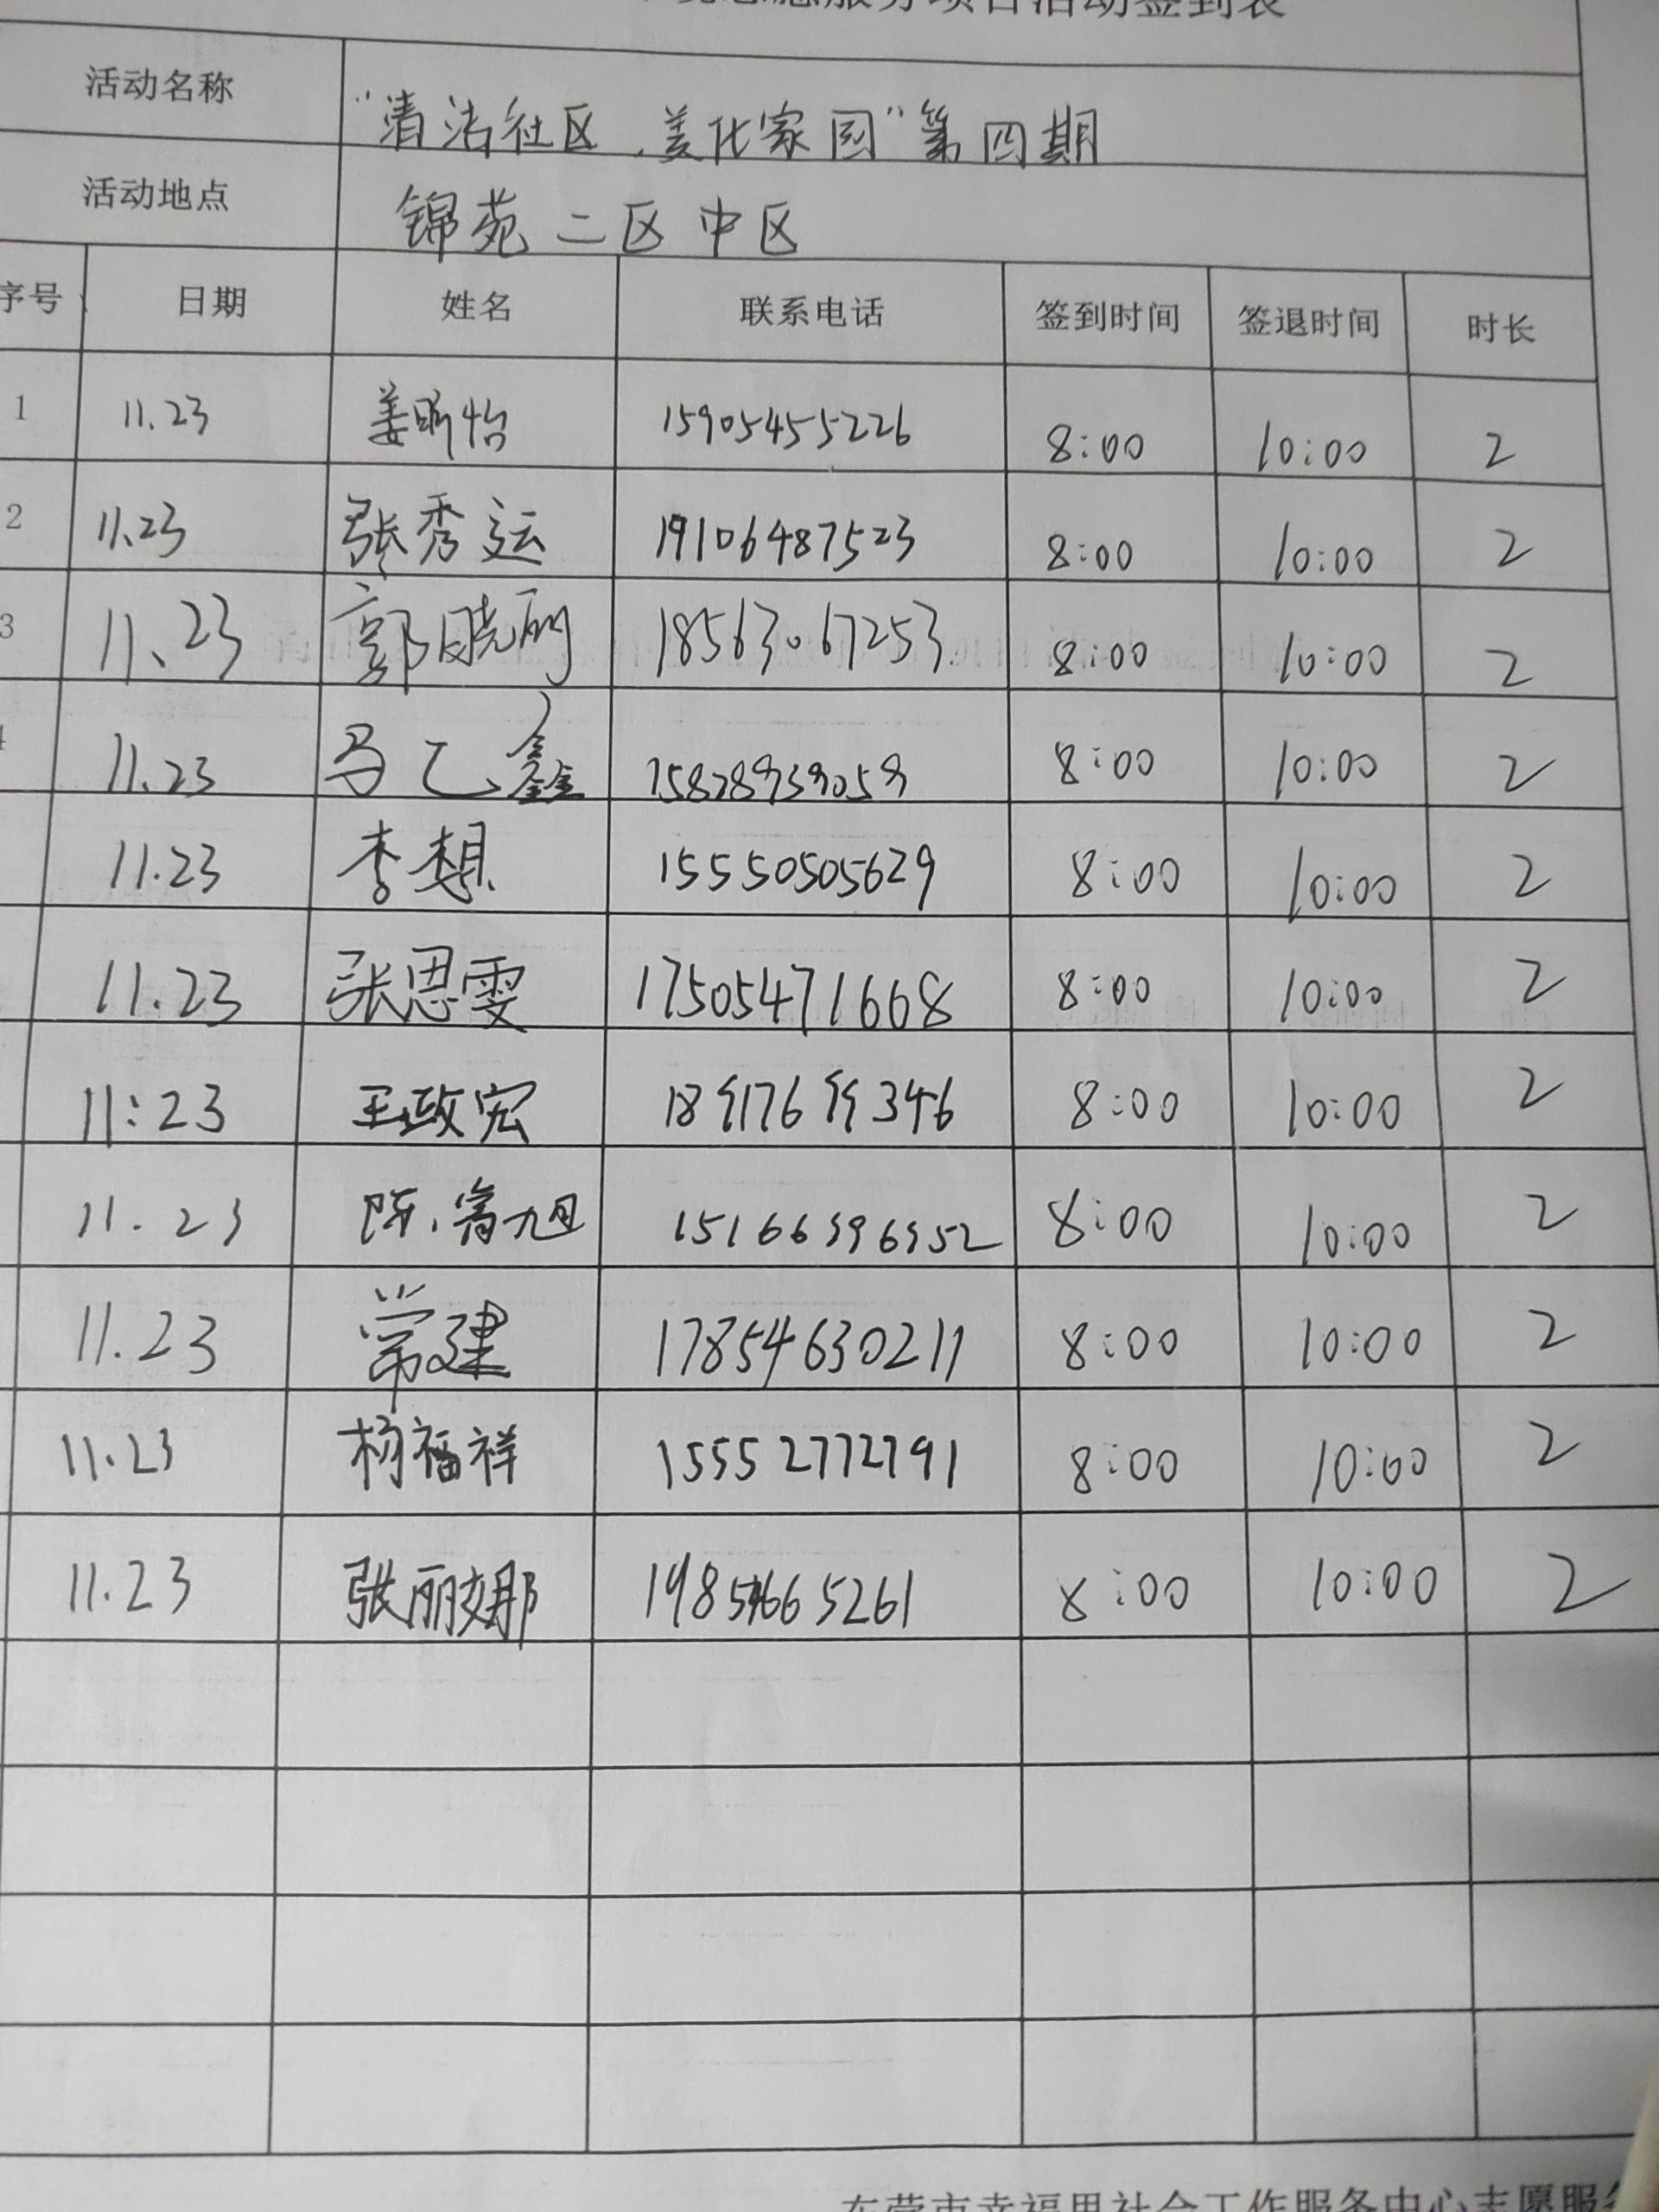 服务项目活动签到表
活动名称 “清洁社区,美化家园”第四期
活动地点 锦苑二区中区
序号 日期 姓名 联系电话 签到时间 签退时间 时长
1 11.23 姜昕怡 15905455226 8:00 10:00 2
2 11.23 张秀运 19106487523 8:00 10:00 2
3 11、23 郭晓丽 18563067253 8:00 10:00 2
11.23 马乙鑫 8:00 10:00 2
11.23 李想 15550505629 8:00 10:00 2
11.23 张思雯 17505471668 8:00 10:00 2
11:23 王政宏 8:00 10:00 2
11.23 8:00 10:00 2
11.23 常建 17854630211 8:00 10:00 2
11.23 杨福祥 15552772791 8:00 10:00 2
11.23 张丽娜 8:00 10:00 2
东营市幸福里社会工作服务中心志愿服务